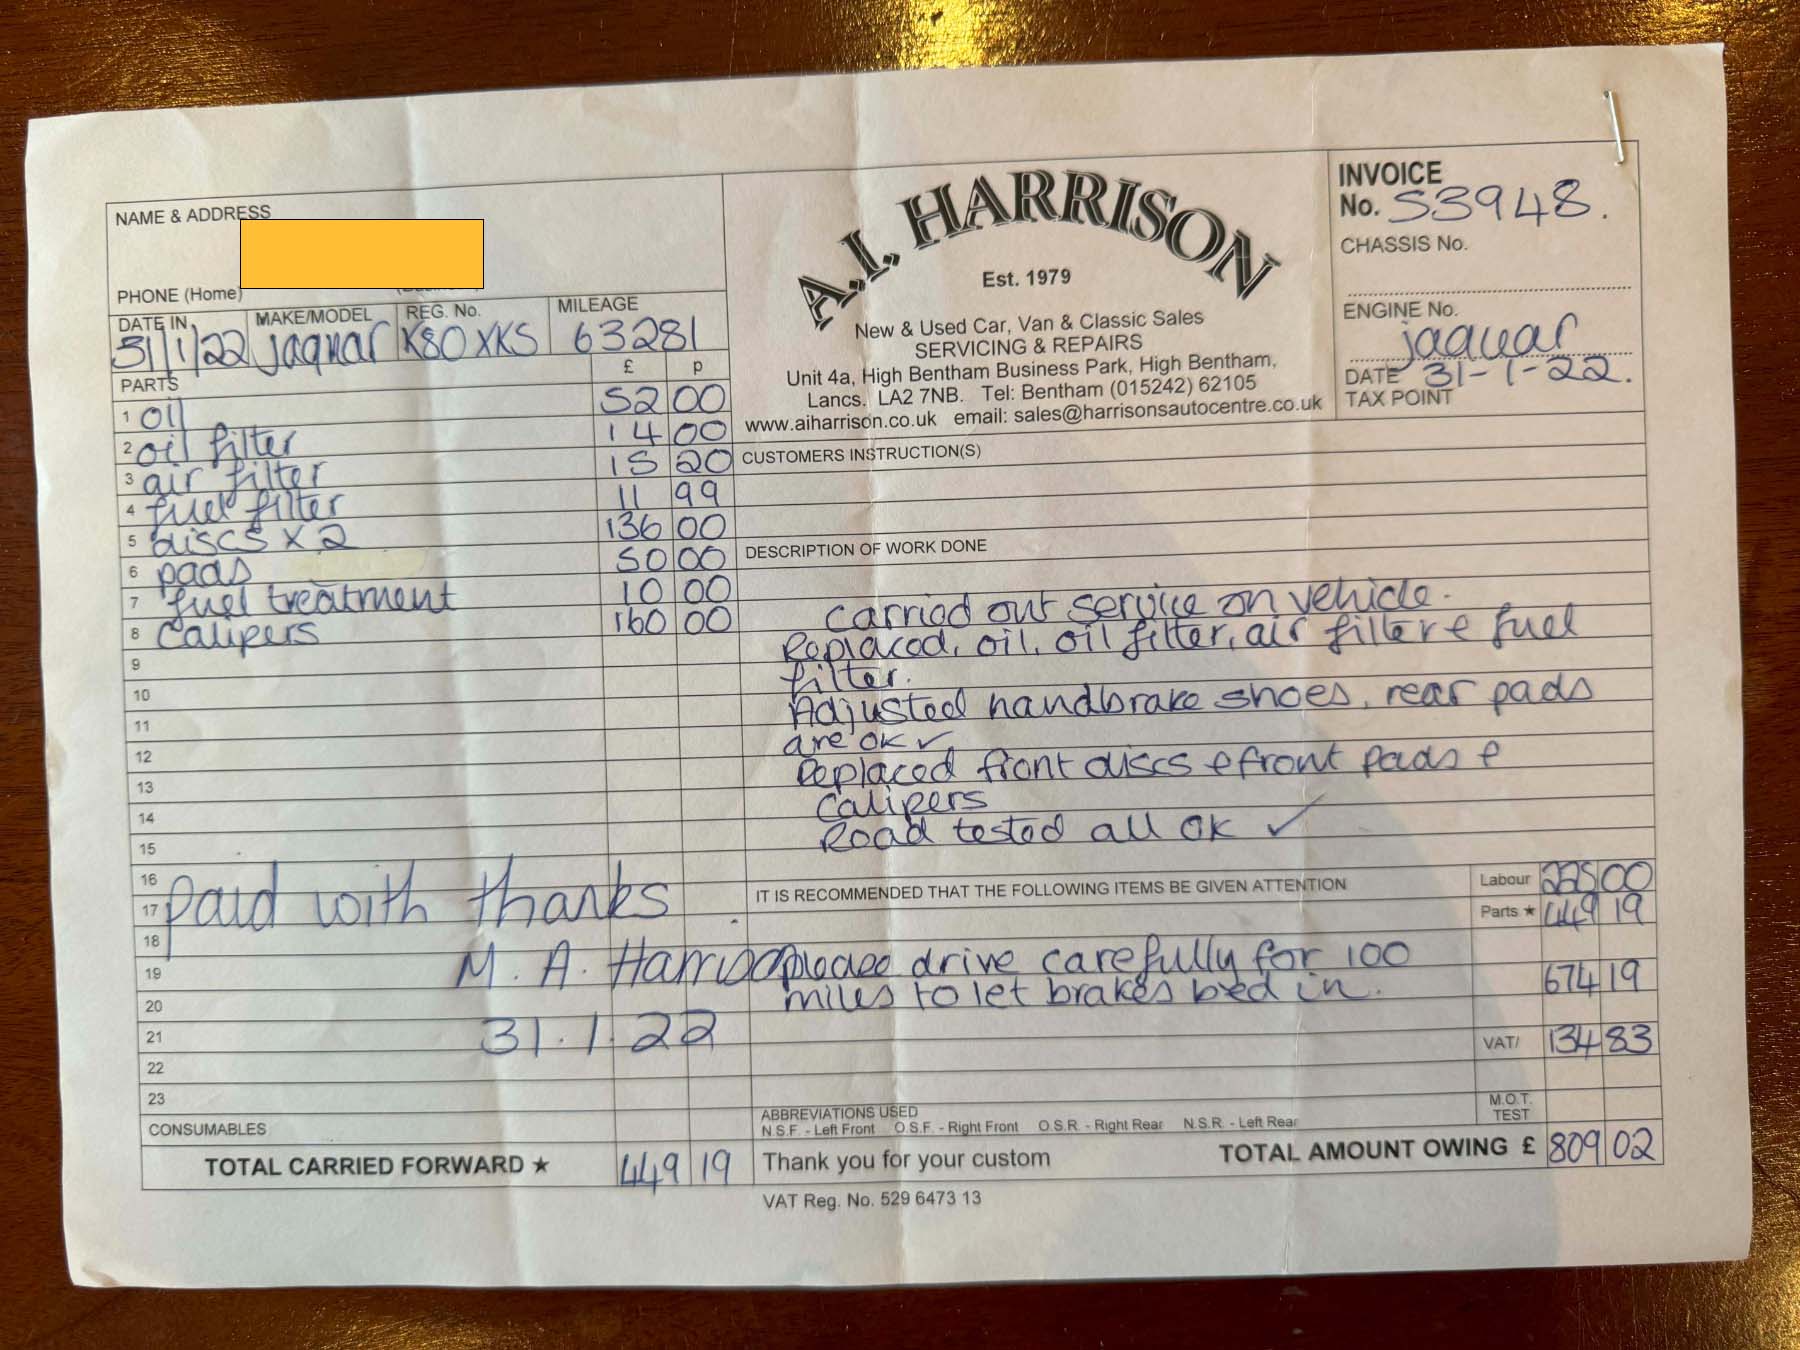 NAME & ADDRESS
PHONE (Home)
DATE IN
31/1/22
MAKE/MODEL
jaguar
REG. No.
K80 XKS
MILEAGE
63281
A.I. HARRISON
Est. 1979
New & Used Car, Van & Classic Sales
SERVICING & REPAIRS
Unit 4a, High Bentham Business Park, High Bentham,
Lancs. LA2 7NB. Tel: Bentham (015242) 62105
www.aiharrison.co.uk email: sales@harrisonsautocentre.co.uk
INVOICE
No. S3948.
CHASSIS No.
ENGINE No.
jaguar
DATE 31-1-22.
TAX POINT
PARTS £ p
1 oil 52 00
2 oil filter 14 00
3 air filter 15 20
4 fuel filter 11 99
5 discs x 2 136 00
6 pads 50 00
7 fuel treatment 10 00
8 calipers 160 00
9
10
11
12
13
14
15
16
17
18
19
20
21
22
23
paid with thanks
M. A. Harrison
31.1.22
CONSUMABLES
TOTAL CARRIED FORWARD ★ 449 19
CUSTOMERS INSTRUCTION(S)
DESCRIPTION OF WORK DONE
Carried out service on vehicle.
Replaced, oil, oil filter, air filter & fuel
filter.
Adjusted handbrake shoes, rear pads
are ok ✓
Replaced front discs & front pads &
calipers
Road tested all ok ✓
IT IS RECOMMENDED THAT THE FOLLOWING ITEMS BE GIVEN ATTENTION
please drive carefully for 100
miles to let brakes bed in.
Labour 225 00
Parts ★ 449 19
674 19
VAT/ 134 83
M.O.T.
TEST
ABBREVIATIONS USED
N.S.F. - Left Front O.S.F. - Right Front O.S.R. - Right Rear N.S.R. - Left Rear
Thank you for your custom
TOTAL AMOUNT OWING £ 809 02
VAT Reg. No. 529 6473 13